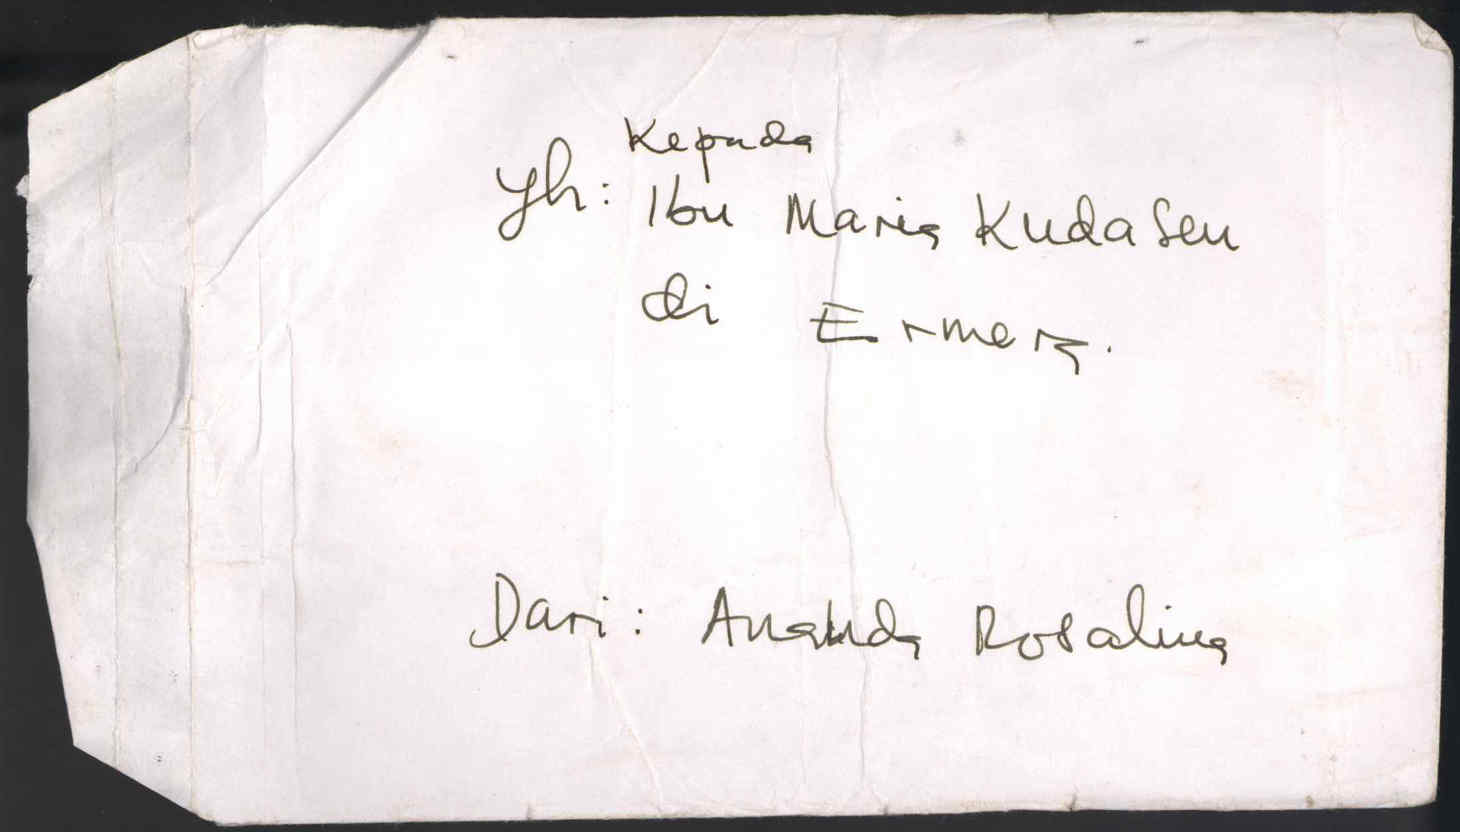 Kepada
Yh: Ibu Maria Kudasen
di Ermera.
Dari: Ananda Rosalina